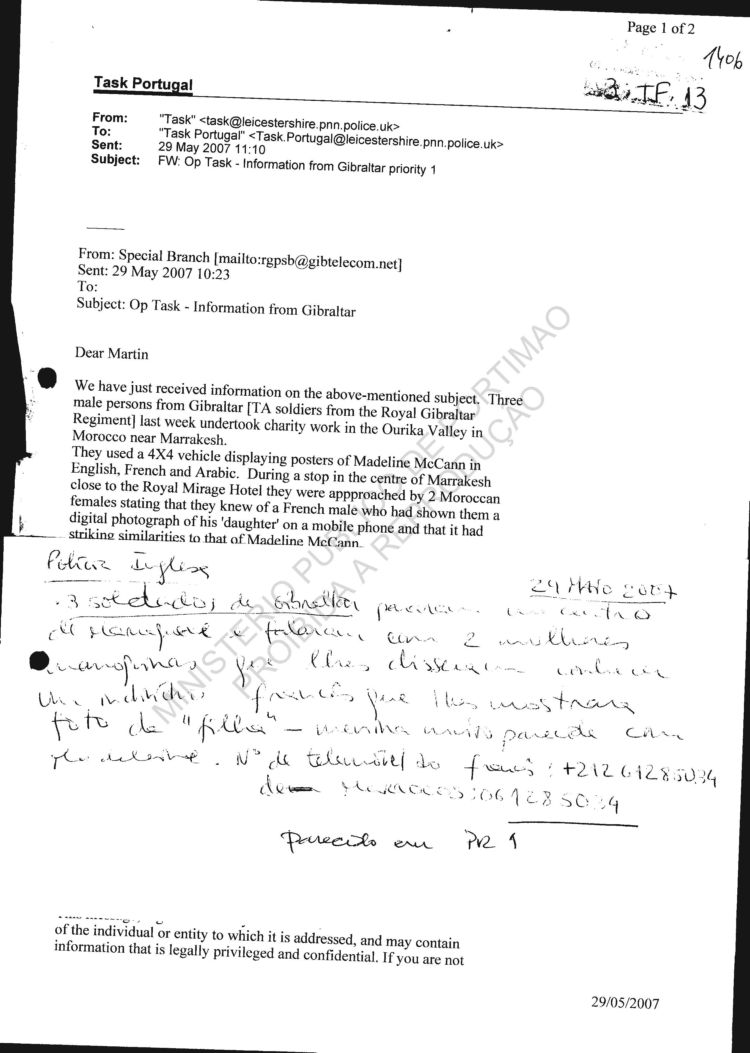 Page 1 of 2
1406
3. I.F. 13
Task Portugal
From: "Task" <task@leicestershire.pnn.police.uk>
To: "Task Portugal" <Task.Portugal@leicestershire.pnn.police.uk>
Sent: 29 May 2007 11:10
Subject: FW: Op Task - Information from Gibraltar priority 1
From: Special Branch [mailto:rgpsb@gibtelecom.net]
Sent: 29 May 2007 10:23
To:
Subject: Op Task - Information from Gibraltar
Dear Martin
We have just received information on the above-mentioned subject. Three
male persons from Gibraltar [TA soldiers from the Royal Gibraltar
Regiment] last week undertook charity work in the Ourika Valley in
Morocco near Marrakesh.
They used a 4X4 vehicle displaying posters of Madeline McCann in
English, French and Arabic. During a stop in the centre of Marrakesh
close to the Royal Mirage Hotel they were appproached by 2 Moroccan
females stating that they knew of a French male who had shown them a
digital photograph of his 'daughter' on a mobile phone and that it had
striking similarities to that of Madeline McCann.
MINISTERIO PUBLICO DE PORTIMAO
PROIBIDA A REPRODUÇÃO
Policia Inglesa
29 MAIO 2007
. 3 soldados de Gibraltar no centro
de e falaram com 2 mulheres
que lhes disseram conhecer
um individuo francês que lhes mostrara
foto da "filha" – menina muito parecida com
. Nº de telemóvel do francês: +212 61285034
de Marrocos: 061285034
parecido em PR 1
of the individual or entity to which it is addressed, and may contain
information that is legally privileged and confidential. If you are not
29/05/2007